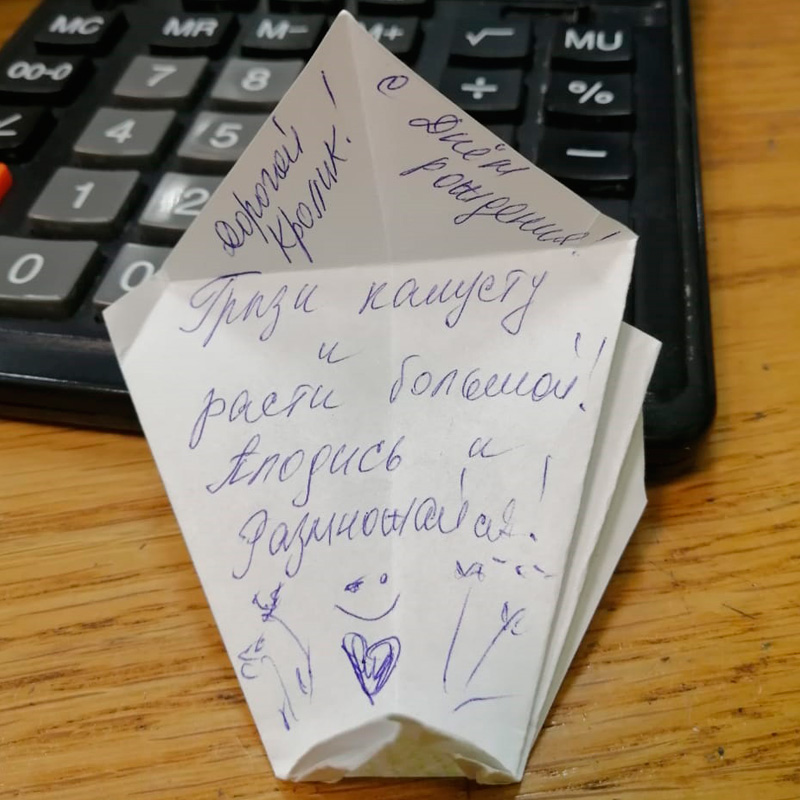 MC MR M- M+ √ MU
00-0 7 8 ÷ %
4 5 -
1 2
0 0
Дорогой
Кролик!
С
Днём
рождения!
Грызи капусту
и
расти большой!
Плодись и
Размножайся!